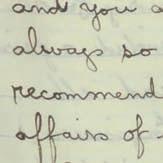 and you a
always so
recommend
affairs of